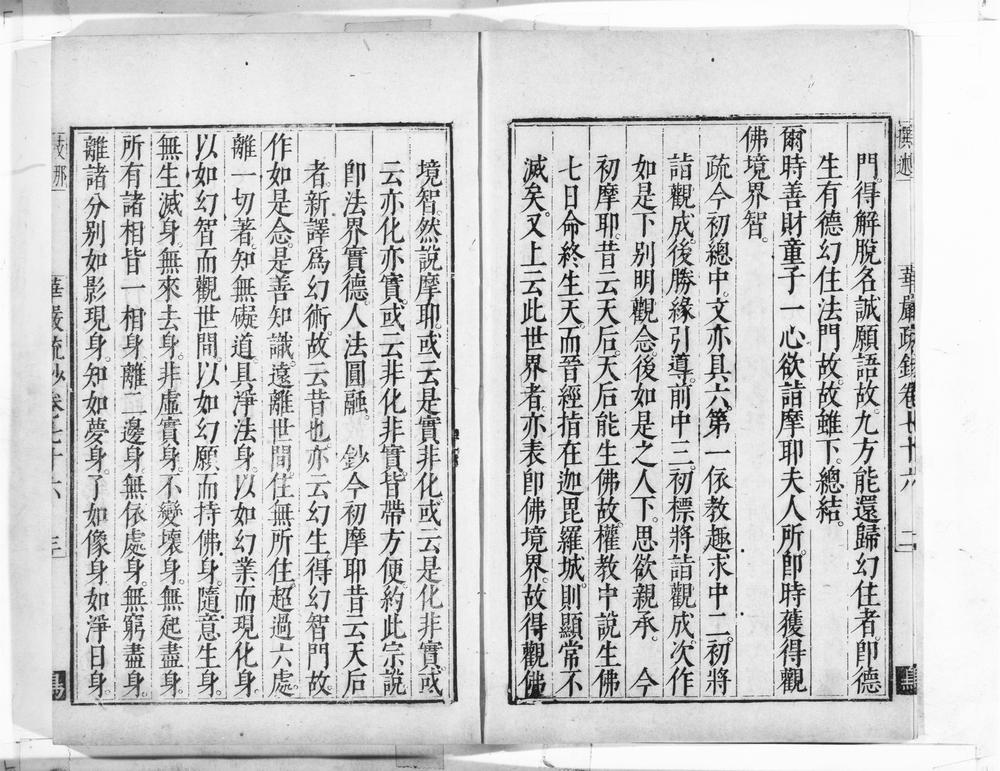 門。得解脫名誠願語故。九方能還歸幻住者。卽德
生有德幻住法門故。故雖下。總結。
爾時善財童子一心欲詣摩耶夫人所。卽時獲得觀
佛境界智。
疏今初總中。文亦具六。第一依教趣求中二。初將
詣觀成。後勝緣引導。前中三。初標將詣觀成。次作
如是下。別明觀念。後如是之人下。思欲親承。　今
初摩耶。昔云天后。天后能生佛故。權教中說生佛
七日命終生天。而晉經指在迦毘羅城。則顯常不
滅矣。又上云此世界者。亦表卽佛境界。故得觀佛
華嚴疏鈔卷七十六　二
境智。然說摩耶。或云是實非化。或云是化非實。或
云亦化亦實。或云非化非實。皆帶方便。約此宗說
卽法界實德。人法圓融。　鈔今初摩耶昔云天后
者。新譯爲幻術。故云昔也。亦云幻生。得幻智門故。
作如是念。是善知識。遠離世間。住無所住。超過六處。
離一切著。知無礙道。具淨法身。以如幻業而現化身。
以如幻智而觀世間。以如幻願而持佛身。隨意生身。
無生滅身。無來去身。非虛實身。不變壞身。無起盡身。
所有諸相皆一相身。離二邊身。無依處身。無窮盡身。
離諸分別如影現身。知如夢身。了如像身。如淨日身。
華嚴疏鈔卷七十六　三